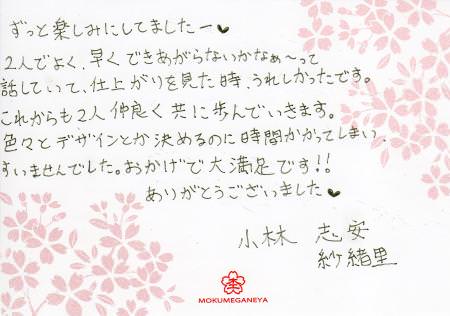 ずっと楽しみにしてましたー♥
2人でよく、早くできあがらないかなぁ〜って
話していて、仕上がりを見た時、うれしかったです。
これからも2人仲良く共に歩んでいきます。
色々とデザインとか決めるのに時間がかってしまい、
すいませんでした。おかげで大満足です!!
ありがとうございました♥
小林 志安
紗緒里
MOKUMEGANEYA